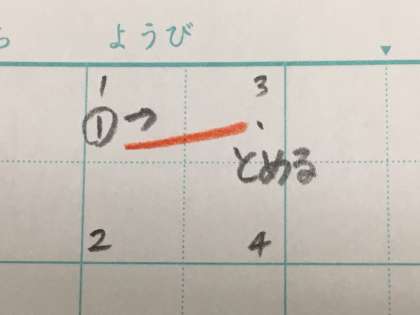 ようび
1 3
① →
とめる
2 4